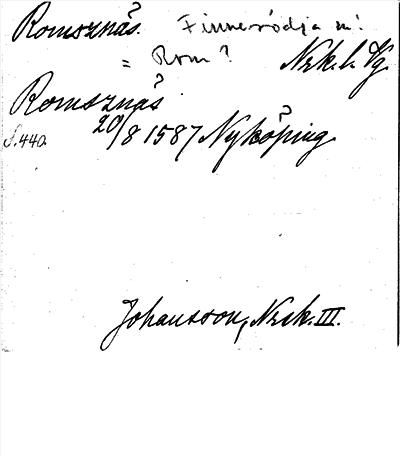 Romsznäs. Finnerödja sn!
= Rom? Nrk. l. Vg.
Romsznäs
20/8 1587 Nyköping
S. 440.
Johansson, Nrck. III.